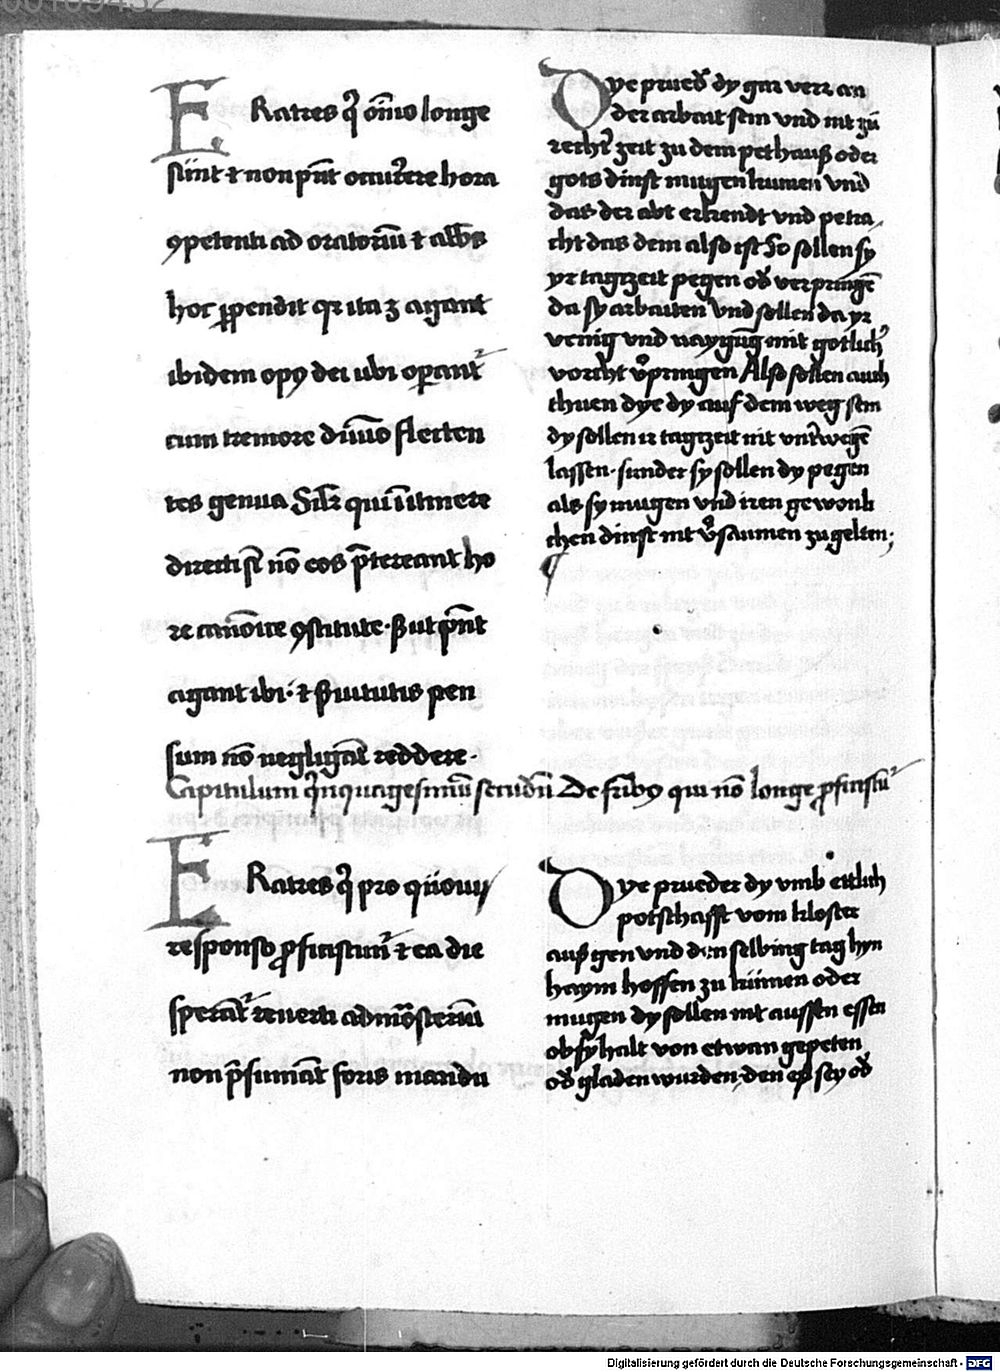 FRatres q̄ om̄io longe
sūnt ⁊ non pn̄t occurrere hora
ꝯpetenti ad oratoriū ⁊ abbas
hoc ꝑpendit qꝛ ita ꝫ agant
ibidem opꝰ dei ubi operantʳ
cum tremore diuīo flecten
tes genua Silr̄ qui ī itinere
directi st̄ nō eos p̄tereant ho
re canōice ꝯstitute · Sꝫ ut pn̄t
agant ibi · ⁊ ẜuitutis pen
sum nō negligāt reddere ·
Dye prued̛ dy gar verr an
der arbait sein vnd nit zū
recht̛ zeit zu dem pethauß oder
gots dinst mugen kumen vnd
das der abt erkendt vnd petra
cht das dem also ist So sollen sy
yr tagzeit pegen od̛ verpringē
da sy arbaiten vnd sollen da yr
venig vnd naygūg mit gotlich̛
vorcht v̛pringen Also sollen auch
thuen dye dy auf dem weg sein
dy sollen ir tagzeit nit vnt̛wegē
lassen · sunder sy sollen dy pegen
als sy mugen vnd iren gewonli
chen dinst nit v̛saumen zu gelten;
Capitulum q̄nquagesimū secūdū De fr̄ibꝰ qui nō longe ꝓficiscūʳ
FRatres q̄ pro quouis
responso ꝓficiscūtʳ ⁊ ea die
sperātʳ reuerti ad mōsteriū
non p̄sumāt foris mandu
Dye prueder dy vmb ettlich
potschafft vom kloster
auß gen vnd den selbing tag hyn
haym hoffen zu kūmen oder
mugen dy sollen nit aussen essen
ob sy halt von etwan gepeten
od̛ gladen wurden, den eß sey od̛
Digitalisierung gefördert durch die Deutsche Forschungsgemeinschaft - DFG